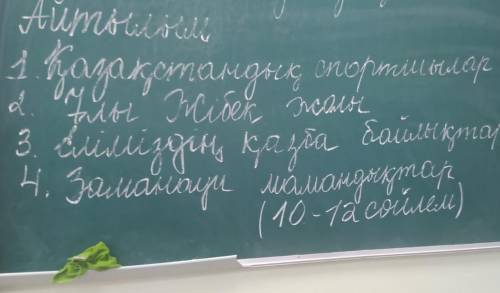 Айтылым
1. Қазақстандық спортшылар
2. Ұлы Жібек жолы
3. Еліміздің қазба байлықтар
4. Заманауи мамандықтар
(10-12 сөйлем)